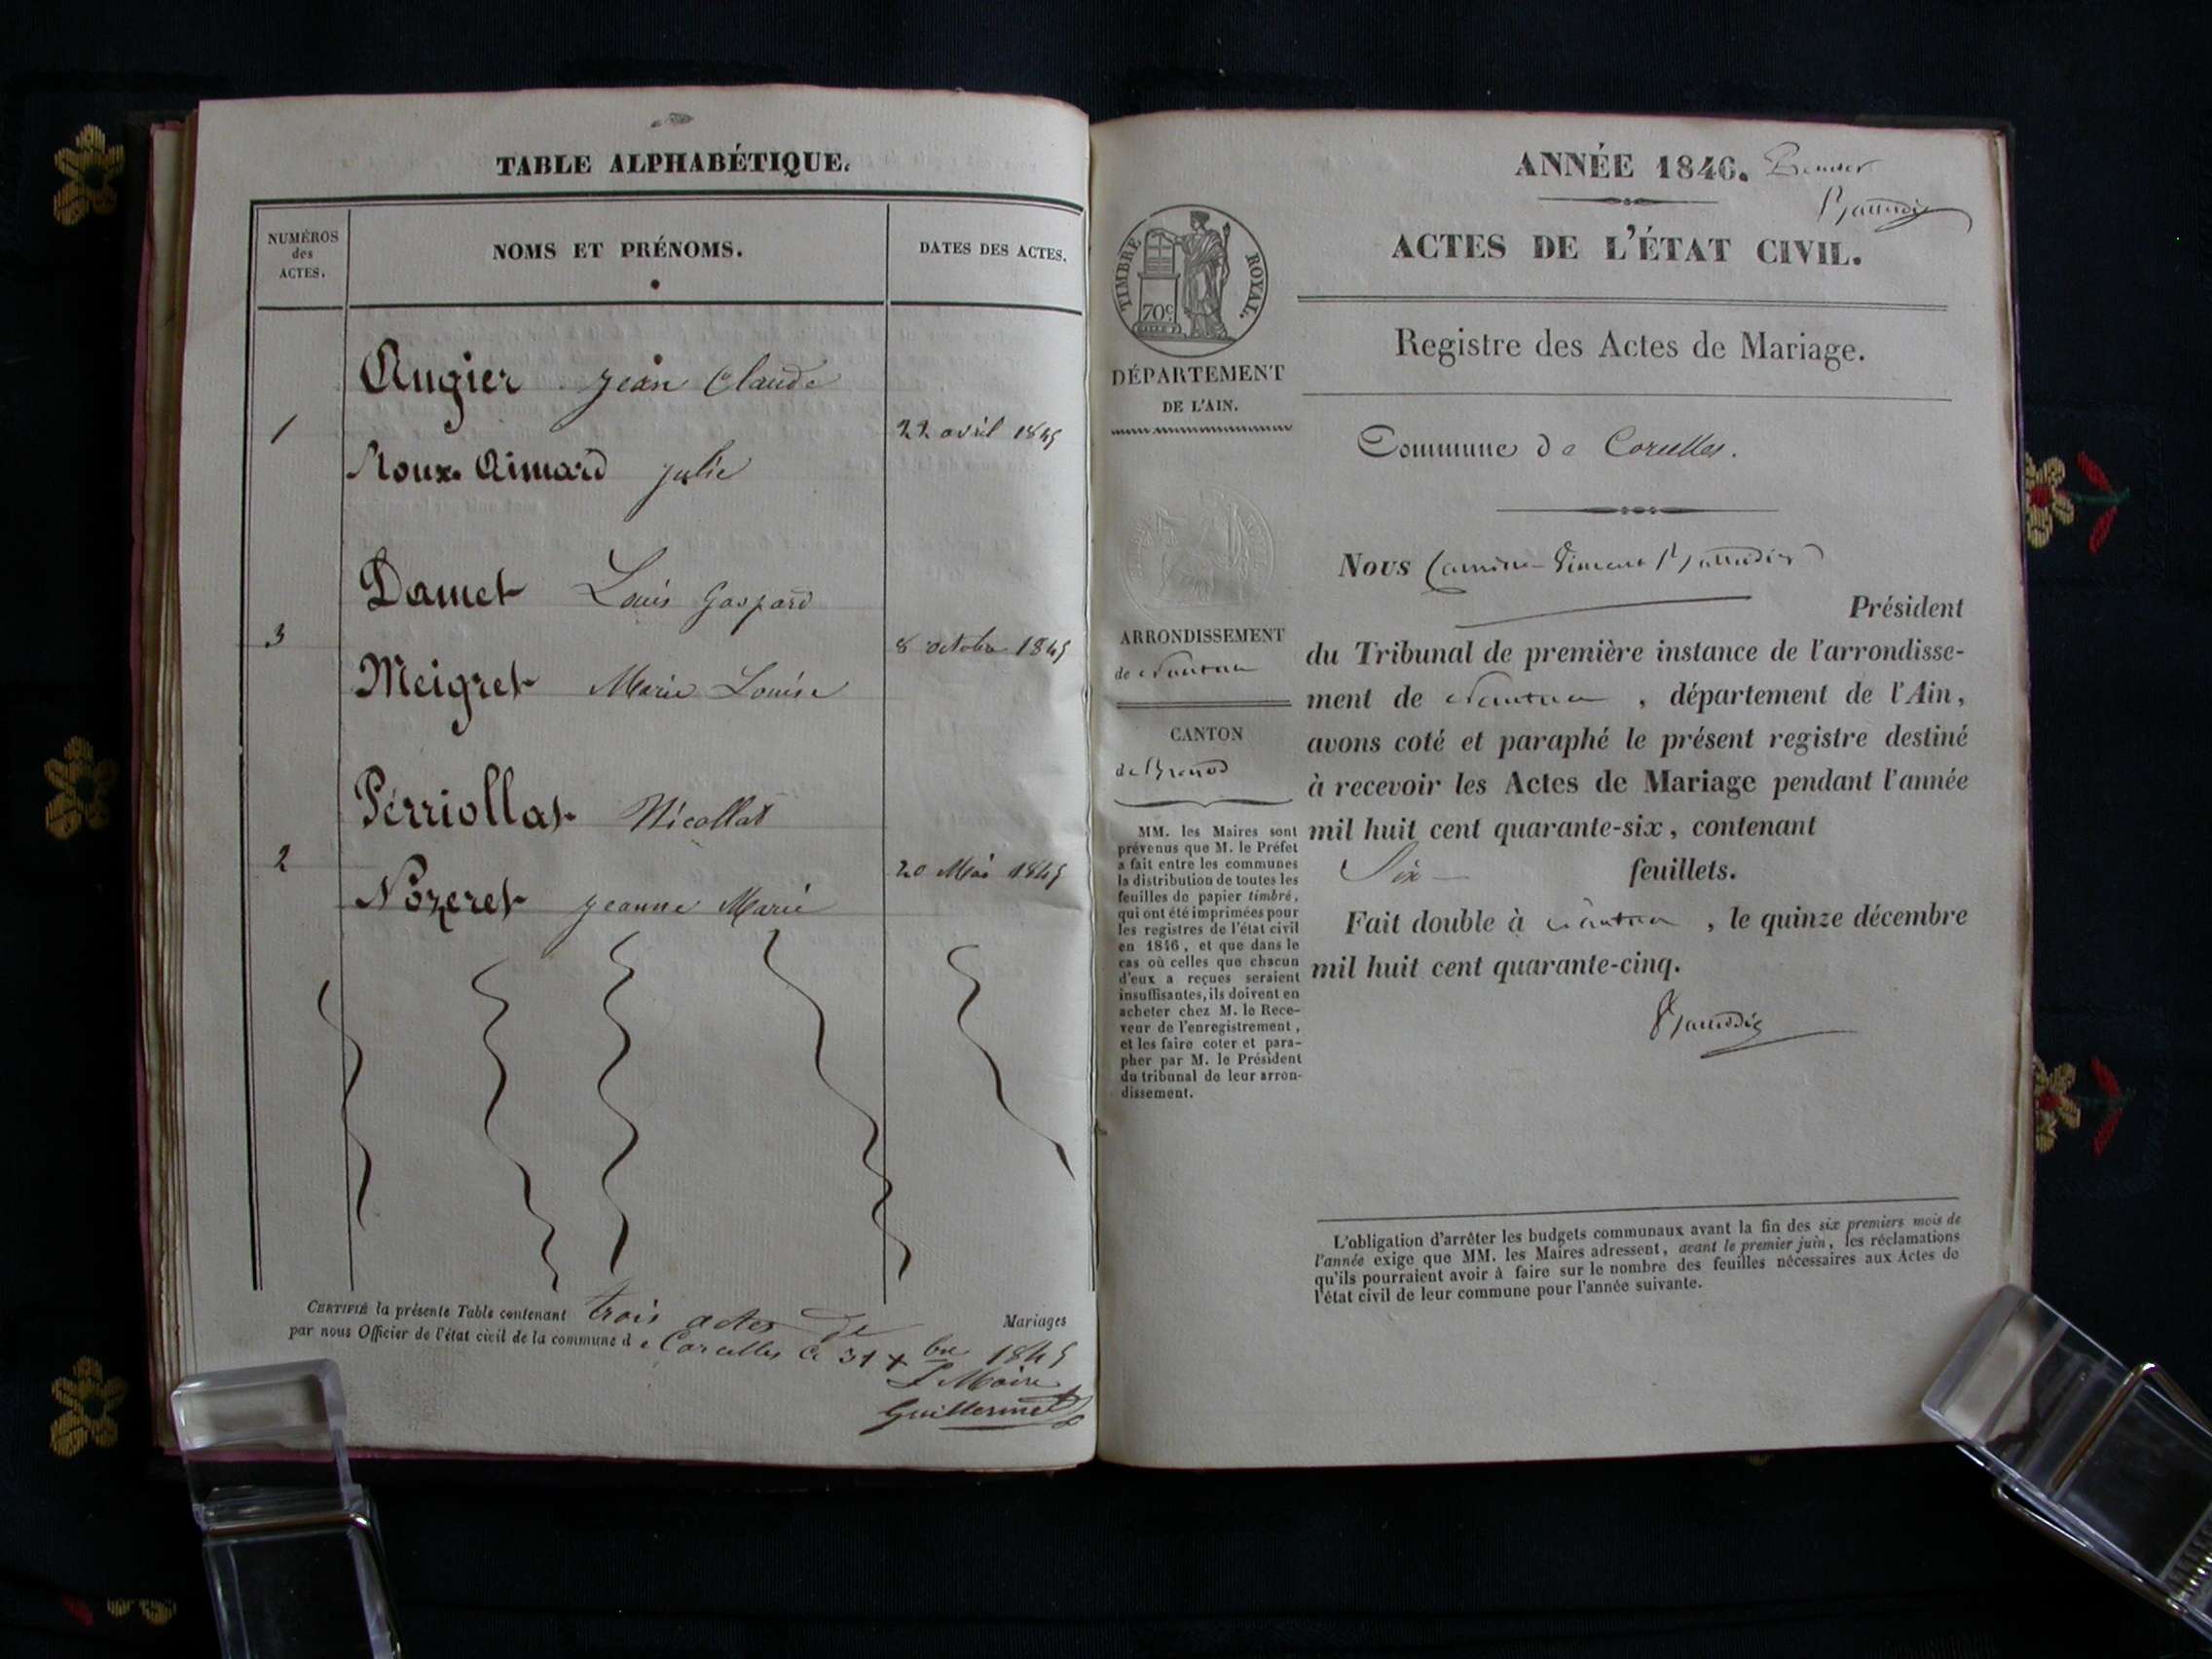 TABLE ALPHABÉTIQUE.
NUMÉROS
des
ACTES.
NOMS ET PRÉNOMS.
DATES DES ACTES.
Augier Jean Claude
1
22 avril 1845
Roux-Aimard Julie
Damet Louis Gaspard
3
8 octobre 1845
Meigret Marie Louise
Perriollat Nicollas
2
20 Mai 1845
Nozeret Jeanne Marie
CERTIFIÉ la présente Table contenant trois actes de Mariages
par nous Officier de l'état civil de la commune de Corcelles Ce 31 Xbre 1845
L Maire
Guillermet
ANNÉE 1846. Premier
ACTES DE L'ÉTAT CIVIL.
TIMBRE ROYAL.
70c
DÉPARTEMENT
DE L'AIN.
Registre des Actes de Mariage.
Commune de Corcelles.
ARRONDISSEMENT
de Nantua
CANTON
de Brenod
MM. les Maires sont
prévenus que M. le Préfet
a fait entre les communes
la distribution de toutes les
feuilles de papier timbré,
qui ont été imprimées pour
les registres de l'état civil
en 1846, et que dans le
cas où celles que chacun
d'eux a reçues seraient
insuffisantes, ils doivent en
acheter chez M. le Rece-
veur de l'enregistrement,
et les faire coter et para-
pher par M. le Président
du tribunal de leur arron-
dissement.
Nous
Président
du Tribunal de première instance de l'arrondisse-
ment de Nantua, département de l'Ain,
avons coté et paraphé le présent registre destiné
à recevoir les Actes de Mariage pendant l'année
mil huit cent quarante-six, contenant
Six feuillets.
Fait double à Nantua, le quinze décembre
mil huit cent quarante-cinq.
L'obligation d'arrêter les budgets communaux avant la fin des six premiers mois de
l'année exige que MM. les Maires adressent, avant le premier juin, les réclamations
qu'ils pourraient avoir à faire sur le nombre des feuilles nécessaires aux Actes de
l'état civil de leur commune pour l'année suivante.